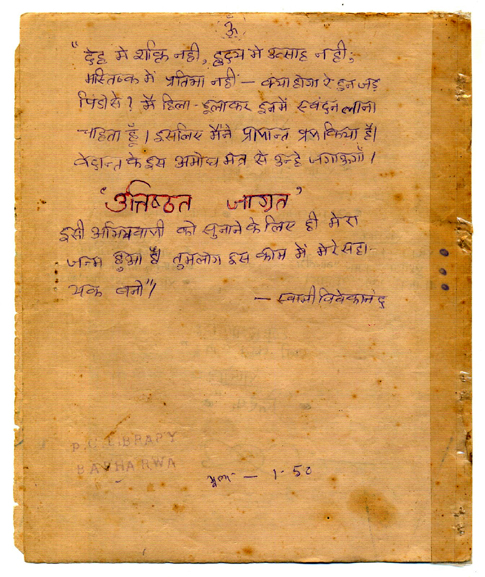 ॐ
"देह में शक्ति नहीं, हृदय में उत्साह नहीं,
मस्तिष्क में प्रतिभा नहीं — क्या होगा रे इन जड़
पिंडों से? मैं हिला-डुलाकर इनमें स्पंदन लाना
चाहता हूँ। इसलिए मैंने प्राणान्त प्रण किया है।
वेदान्त के इस अमोघ मंत्र से उन्हें जगाऊगाँ।
'उत्तिष्ठत जाग्रत'
इसी अग्निवाणी को सुनाने के लिए ही मेरा
जन्म हुआ है। तुमलोग इस काम में मेरे सहा-
यक बनो"।
— स्वामी विवेकानंद
P. LIBRARY
BARHARWA
मूल्य — 1.50